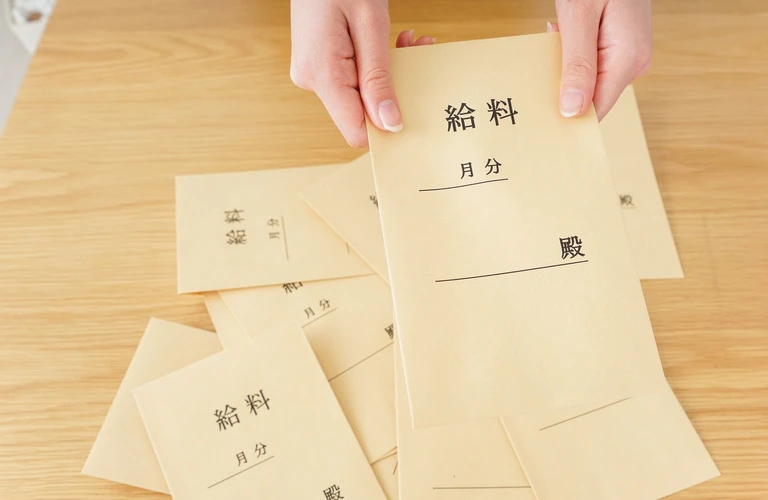 給料
月分
殿
給料
月分
月分
給料
月分
殿